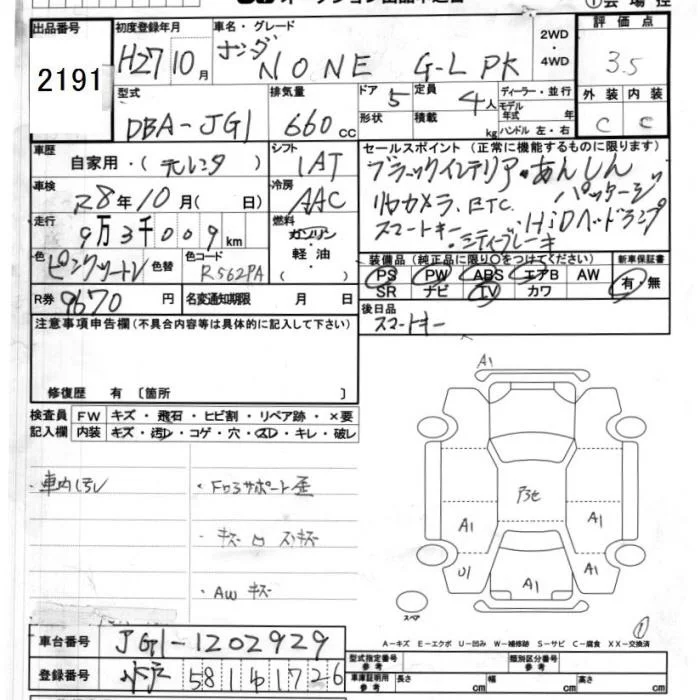 出品番号 初度登録年月 車名・グレード 評価点
2191 H27 10月 ホンダ N ONE G-L PK 2WD・4WD 3.5
型式 排気量 ドア 定員 ディーラー・並行 外装 内装
DBA-JG1 660cc 5 4人 モデル年式 年 C C
形状 積載 kg ハンドル 左・右
車歴 シフト セールスポイント (正常に機能するものに限ります)
自家用・(元レンタ) IAT ブラックインテリア・あんしん
車検 冷房 パッケージ
R8年10月( 日) AAC リヤカメラ、ETC、HiDヘッドランプ
走行 燃料 スマートキー・シティブレーキ
9万3千009km ガソリン・軽油・( )
色 色替 色コード 装備品(純正品に限り○をつけてください) 新車保証書
ピンクツートン R562PA PS PW ABS エアB AW 有・無
SR ナビ TV カワ
R券 9670円 名変通知期限 月 日 後日品
注意事項申告欄(不具合内容等は具体的に記入して下さい) スマートキー
修復歴 有 〔箇所 〕
検査員 FW キズ・飛石・ヒビ割・リペア跡・×要
記入欄 内装 キズ・汚レ・コゲ・穴・スレ・キレ・破レ
・車内汚レ ・Fロアサポート歪
・AW キズ
A1
A1 A1
U1 A1 A1
スペア
①
A-キズ E-エクボ U-凹み W-補修跡 S-サビ C-腐食 XX-交換済
車台番号 JG1-1202929 型式指定番号 参考 類別区分番号 参考
登録番号 水戸 581 1726 車庫証明用 参考 長さ cm 幅 cm 高さ cm